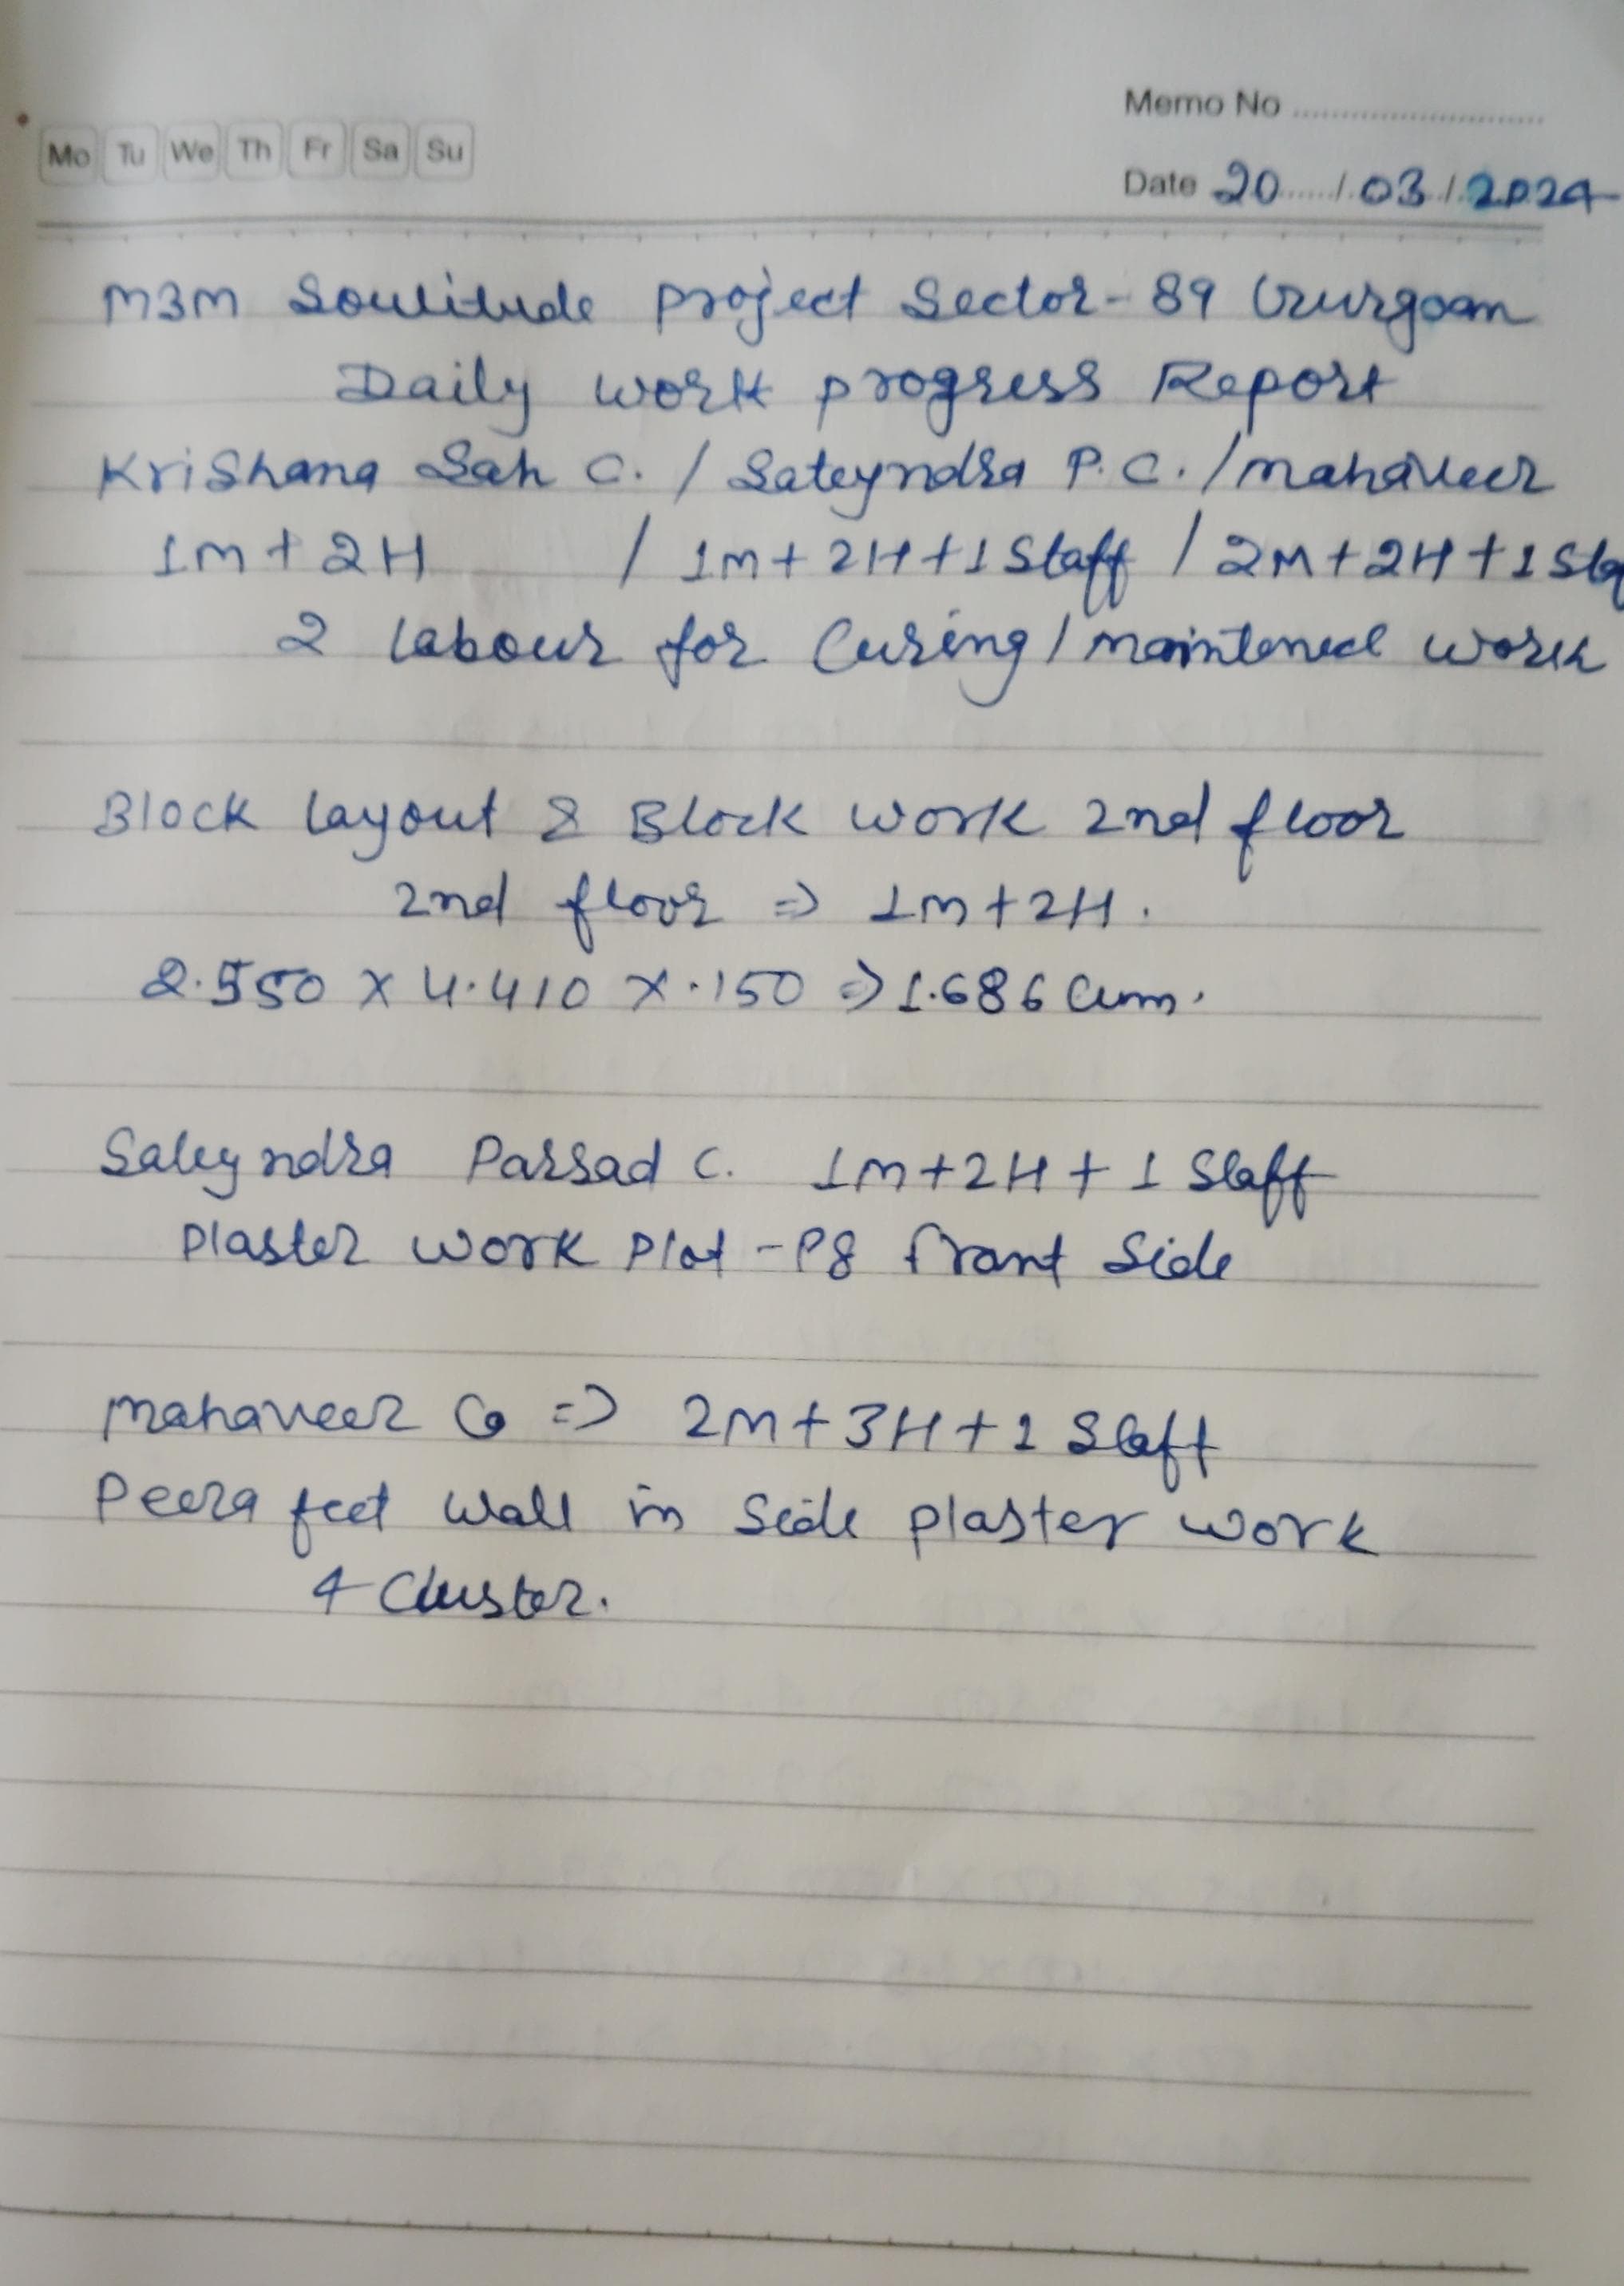 Memo No
Mo Tu We Th Fr Sa Su
Date 20/03/2024
M3M Soulitude project Sector-89 Gurgoam
Daily work progress Report
Krishana Sah C. / Sateyndra P.C. / mahaveer
1m+2H / 1m+2H+1 Staff / 2M+2H+1 Sta
2 labour for Curing / maintenece work
Block layout & Block work 2nd floor
2nd floor => 1m+2H.
2.550 x 4.410 x .150 => 1.686 Cum.
Sateyndra Parsad C. 1m+2H+1 Staff
Plaster work Plot -P8 front Side
mahaveer Co => 2M+3H+1 Staff
Peera feet wall in Side plaster work
4 Cluster.